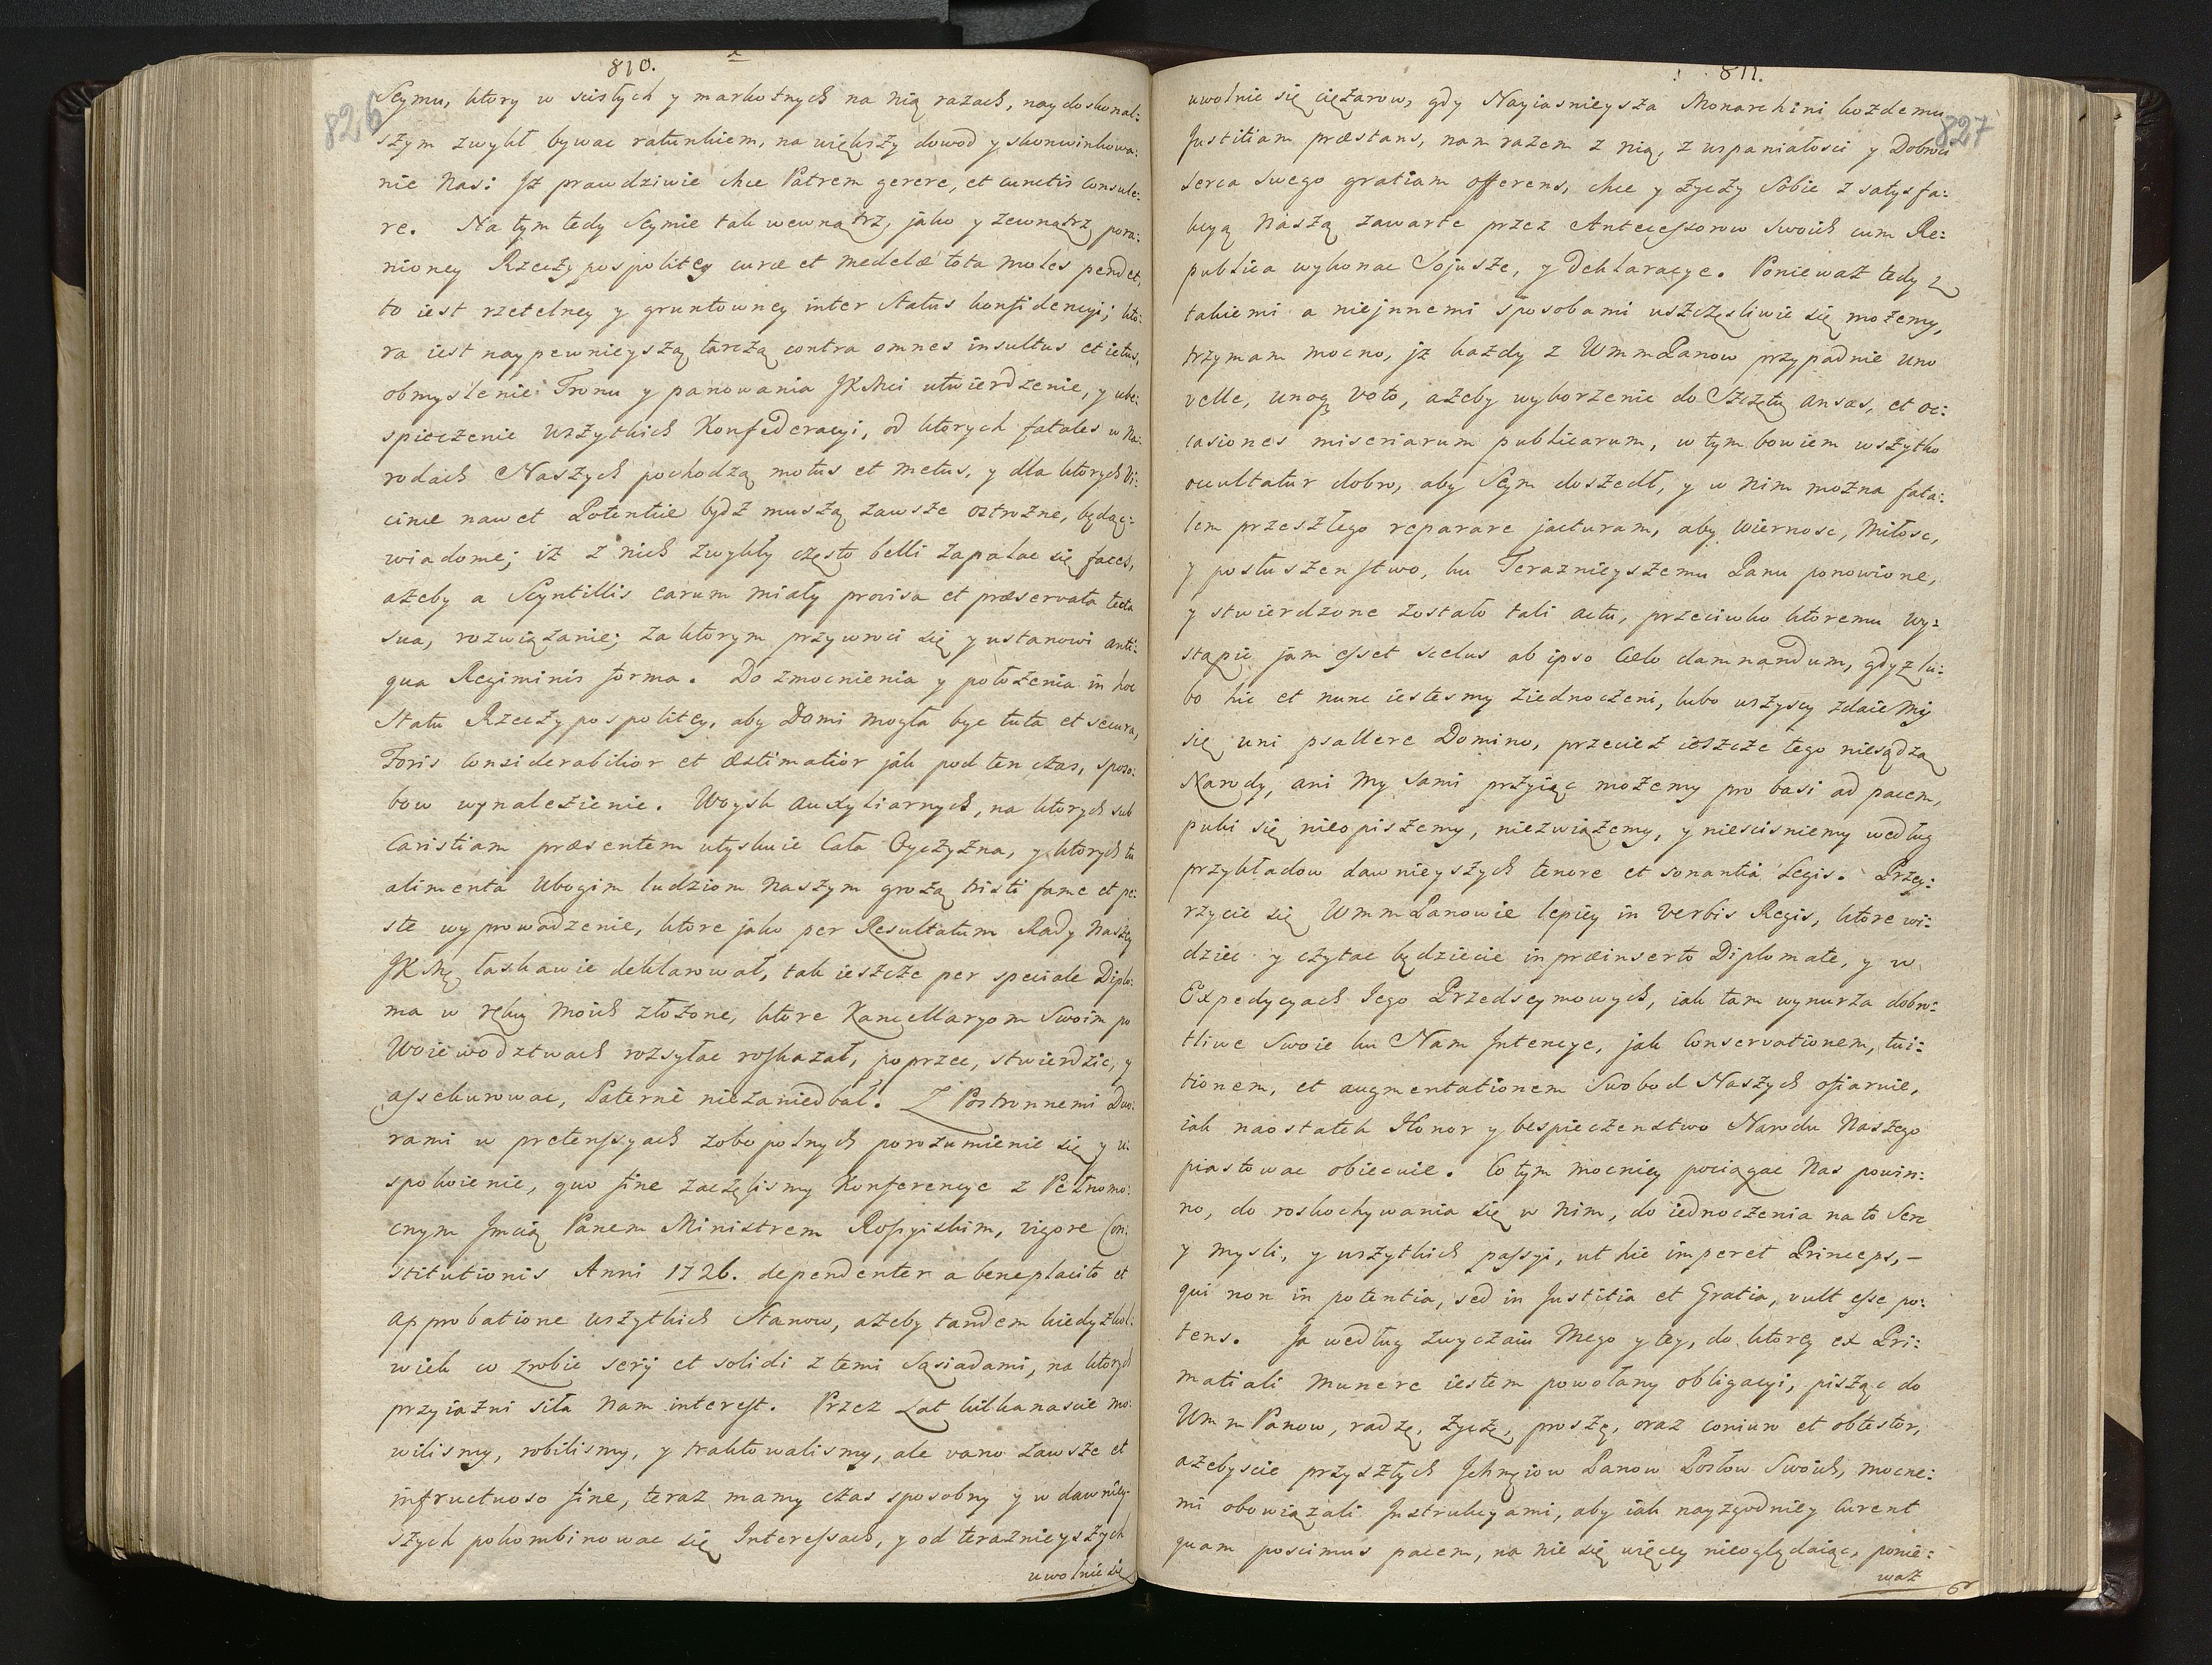 810.
826
Seymu, ktory w scisłych y markotnych na nią razach, naydoskonal:
szym zwykł bywac ratunkiem, na większy dowod y skonwinkowa:
nie Nas: Jż prawdziwie chce Patrem gerere, et cunctis consule:
re. Na tym tedy Seymie tak wewnątrz, jako y zewnątrz pora:
nioney Rzeczypospolitey curæ et medelæ tota moles pendet,
to iest rzetelney y gruntowney inter Status konfidencyi; kto:
ra iest naypewnieyszą tarczą contra omnes insultus et ictus,
obmyslenie: Tronu y panowania JKMci utwierdzenie, y ube:
spieczenie wszytkich Konfederacyi, od ktorych fatales w Na:
rodach Naszych pochodzą motus et metus, y dla ktorych Vi:
cinæ nawet Potentiæ bydz muszą zawsze oztrożne, będąc:
wiadome; iż z nich zwykły często belli zapalac się faces,
ażeby a Scyntillis earum miały provisa et præservata tecta
sua, rozwiązanie; za ktorym przywroci się y ustanowi anti:
qua Regiminis forma. Do zmocnienia y położenia in hoc
Statu Rzeczypospolitey, aby Domi mogła byc tuta et secura,
Foris considerabilior et æstimatior jak pod ten czas, sposo:
bow wynalezienie. Woysk Auxyliarnych, na ktorych sub
Caristiam præsentem utyskuie Cała Oyczyzna, y ktorych tu
alimenta Ubogim ludziom Naszym grożą tristi fame et pe:
ste wyprowadzenie, ktore jako per Resultatum Rady Naszey
JKMę łaskawie deklarował, tak ieszcze per speciale Diplo:
ma w ręku moich złożone, ktore Kancellaryom Swoim po
Woiewodztwach rozsyłac roskazał, poprzec, stwierdzic, y
assekurowac, Paternè niezaniedbał. Z Postronnemi Dwo:
rami w pretensyach zobopolnych porozumienie się y u:
spokoienie, quo fine zaczęlismy Konferencye z Pełnomo:
cnym Jmcią Panem Ministrem Rossyiskim, vigore Con:
stitutionis Anni 1726. dependenter a beneplacito et
approbatione wszytkich Stanow, ażeby tandem kiedyżkol:
wiek co zrobic serij et solidi z temi Sąsiadami, na ktorych
przyiazni siła Nam interest. Przez Lat kilkanascie mo:
wilismy, robilismy, y traktowalismy, ale vano zawsze et
infructuoso fine, teraz mamy czas sposobny y w dawniey:
szych pokombinowac się Interessach, y od teraznieyszych
uwolnic się
811.
827
uwolnic się ciężarow, gdy Nayiasnieysza Monarchini kozdemu
Justitiam præstans, nam razem z nią, z uspaniałosci y Dobroci
serca swego gratiam offerens, chce y życzy Sobie z satysfa:
kcyą Naszą zawarte przez Antecessorow Swoich cum Re:
publica wykonac Sojusze, y Deklaracye. Ponieważ tedy z
takiemi a niejnnemi sposobami uszczęsliwic się możemy,
trzymam mocno, jż kazdy z WmmPanow przypadnie uno
velle, unoq voto, ażeby wykorzenic do Szczętu ansas, et oc:
casiones miseriarum publicarum, w tym bowiem wszytko
occultatur dobro, aby Seym doszedł, y w nim można fata:
lem przeszłego reparare jacturam, aby wiernosc, miłosc,
y posłuszenstwo, ku Teraznieyszemu Panu ponowione,
y stwierdzone zostało tali actu, przeciwko ktoremu wy:
stąpic jam esset scelus ab ipso Cælo damnandum, gdyz lu:
bo hic et nunc iestesmy ziednoczeni, lubo wszyscy zdaiemy
się uni psallere Domino, przecież ieszcze tego niesądzą
Narody, ani my Sami przyiąc możemy pro basi ad pacem,
puki się nieopiszemy, niezwiążemy, y niescisniemy według
przykładow dawnieyszych tenore et sonantia Legis. Przey:
rzycie się WmmPanowie lepiey in verbis Regis, ktore wi:
dziec y czytac będziecie in præinserto Diplomate, y w
Expedycyach Jego Przedseymowych, iak tam wynurza dobro:
tliwe Swoie ku Nam Jntencye, jak Conservationem, tui:
tionem, et augmentationem Swobod Naszych ofiaruie,
iak naostatek Honor y bespieczenstwo Narodu Naszego
piastowac obiecuie. Co tym mocniey pociągac Nas powin:
no, do roskochywania się w Nim, do iednoczenia na to Serc
y mysli, y wszytkich passyi, ut hic imperet Princeps, –
qui non in potentia, sed in Justitia et Gratia, vult esse po:
tens. Ja według zwyczaiu Mego y tey, do ktorey ex Pri:
matiali munere iestem powołany obligacyi, pisząc do
WmmPanow, radzę, życzę, proszę, oraz coniuro et obtestor,
ażebyscie przyszłych Jchmciow Panow Posłow Swoich, mocne:
mi obowiązali Jnstrukcyami, aby iak nayzgodniey Curent
quam poscimus pacem, na nic się więcey nieoglądaiąc, ponie:
waż